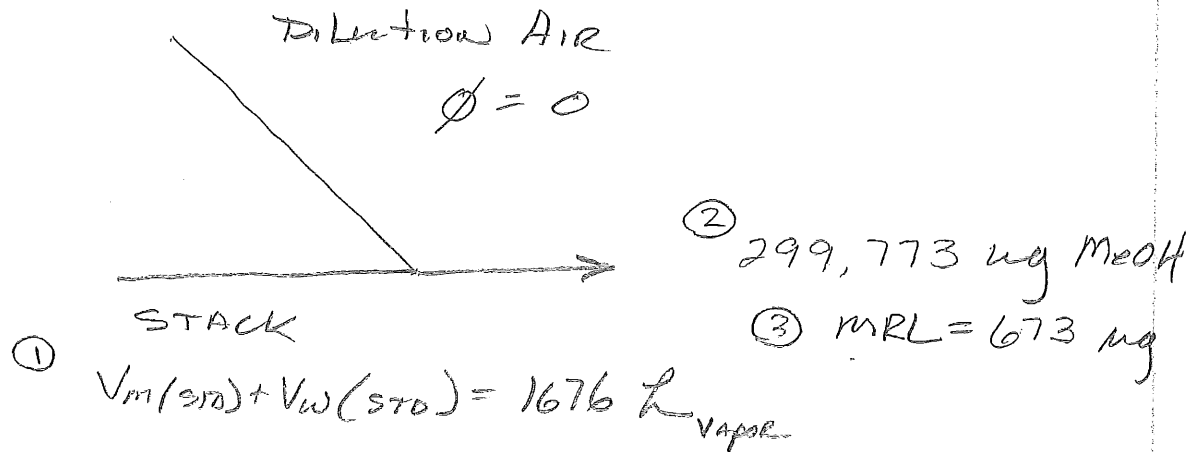 Dilution AIR
Ø = 0
② 299,773 ug MeOH
STACK
③ MRL = 673 ug
①
Vm(STD) + Vw(STD) = 1676 L VAPOR